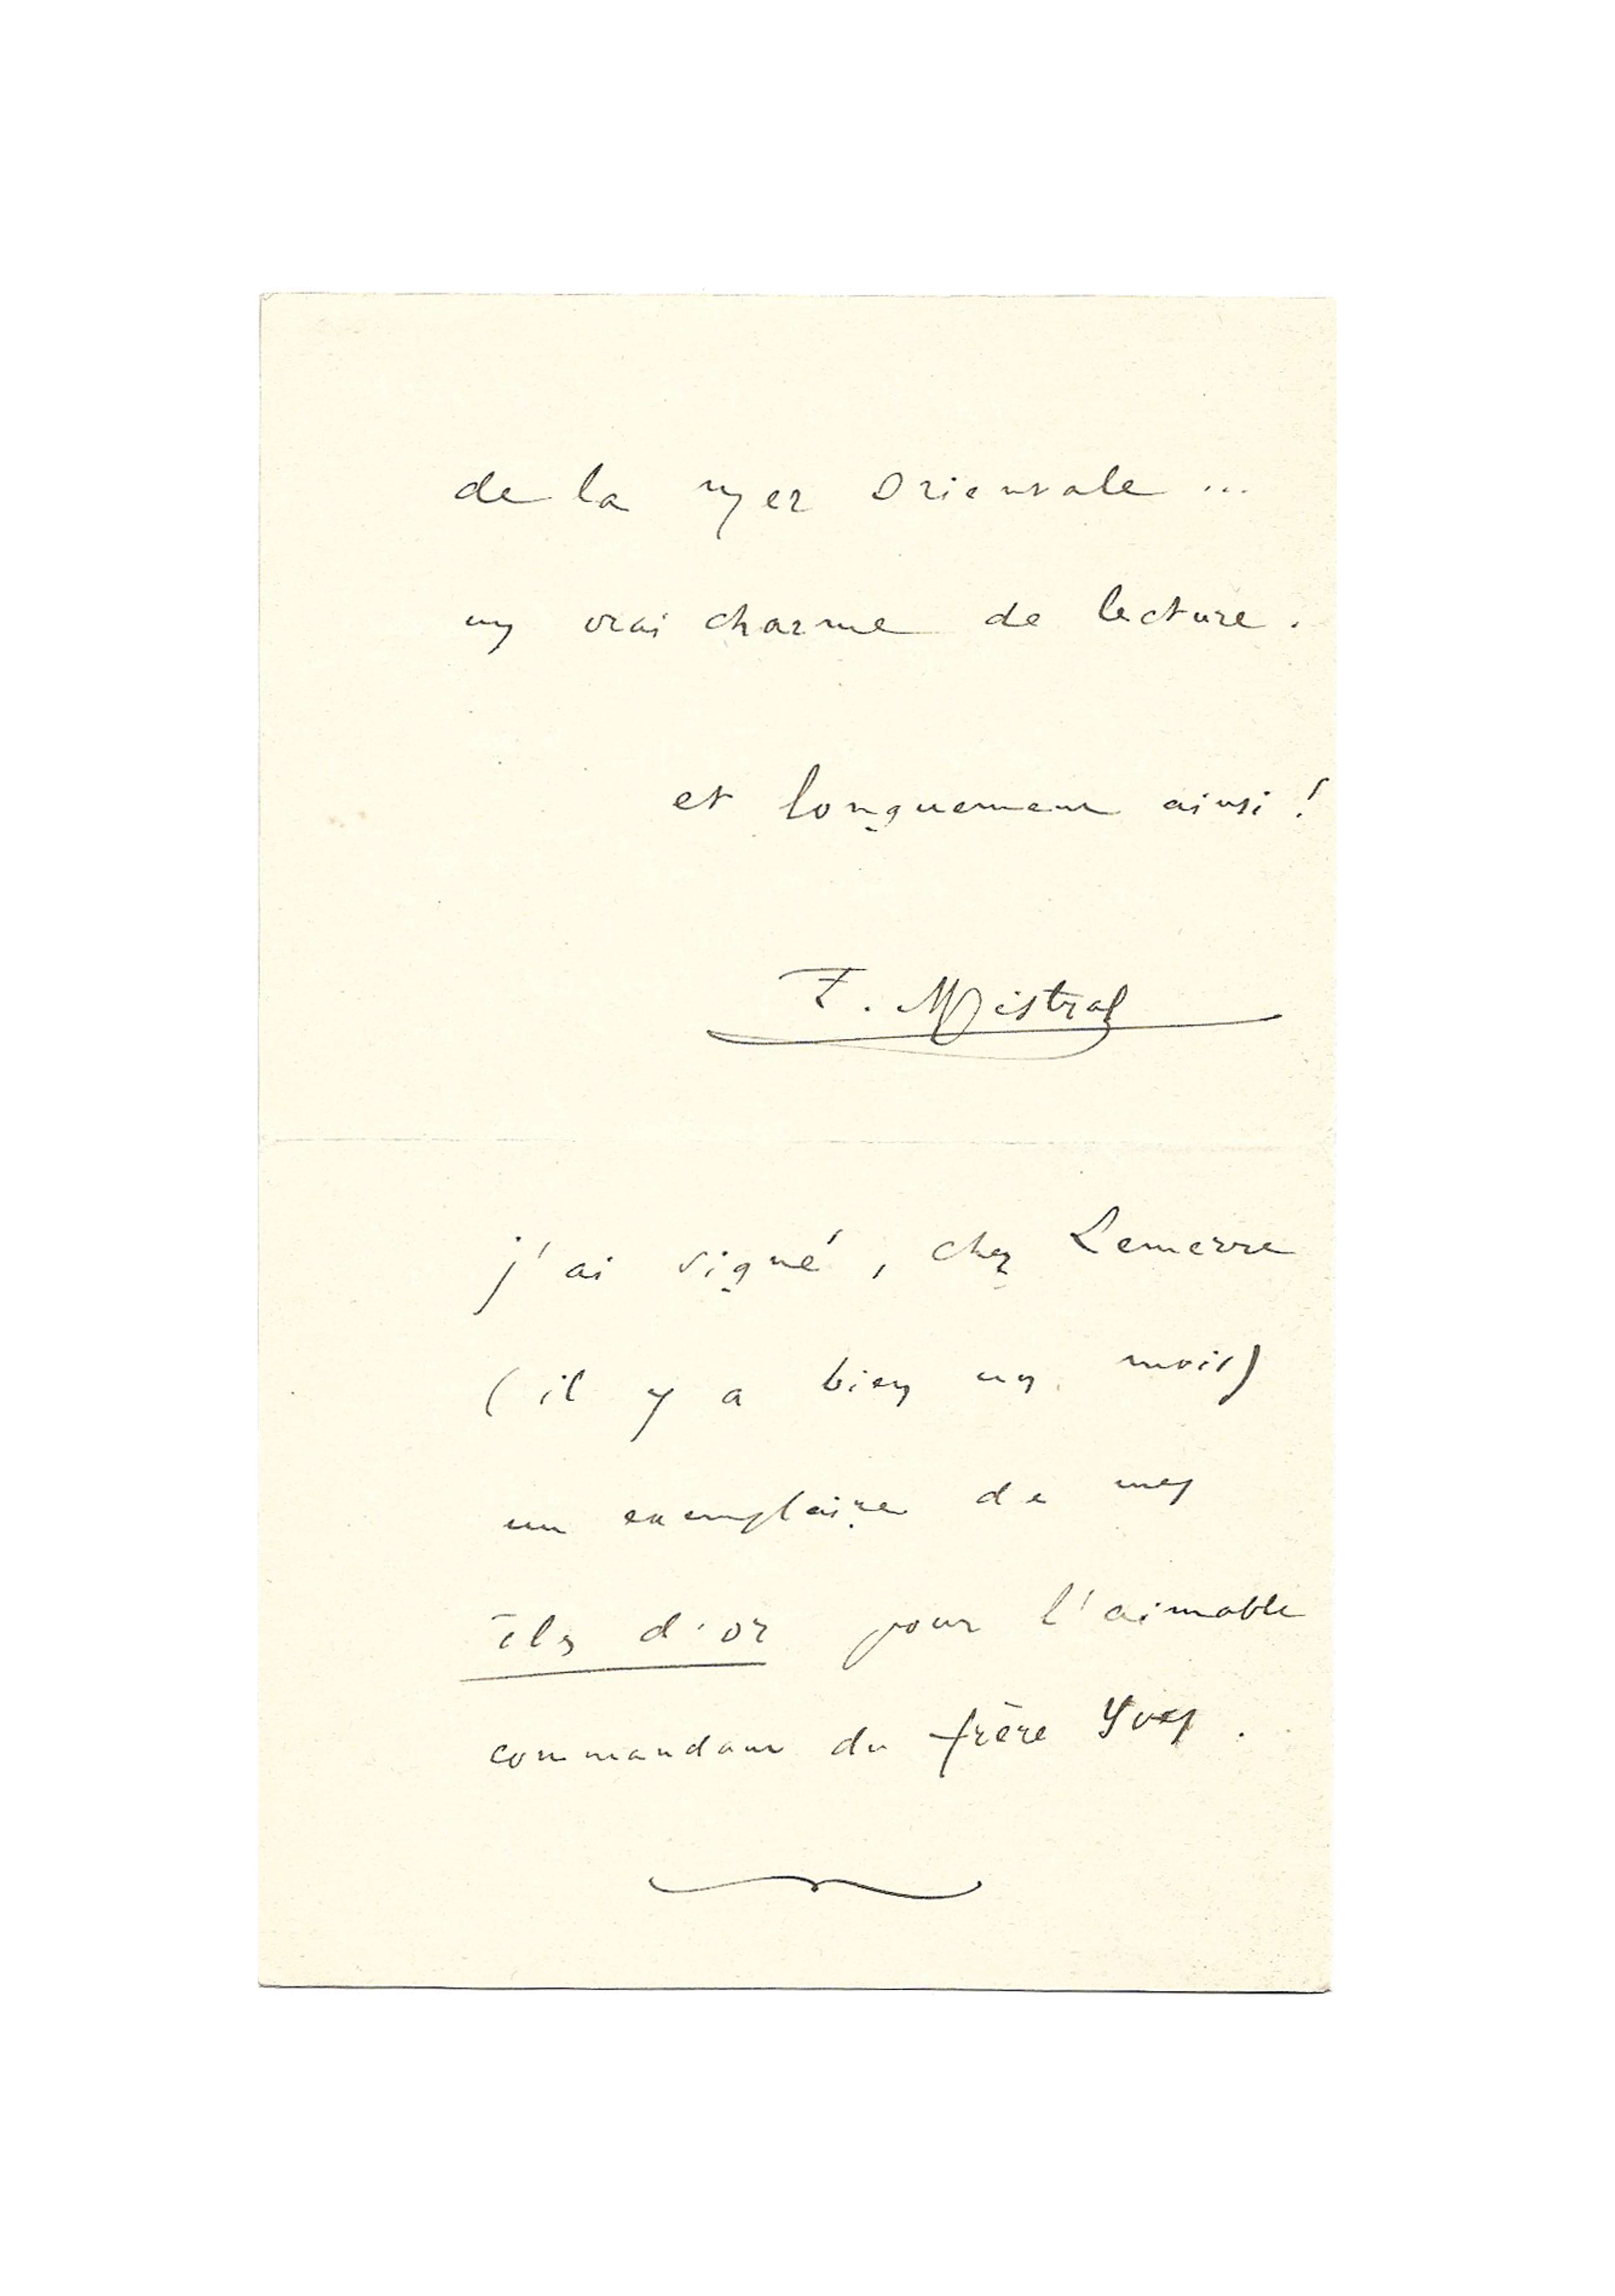 de la mer Orientale ...
un vrai charme de lecture.
et longuement ainsi !
F. Mistral
j'ai signé, chez Lemerre
(il y a bien un mois)
un exemplaire de mes
îles d'or pour l'aimable
commandant du frère Yves.